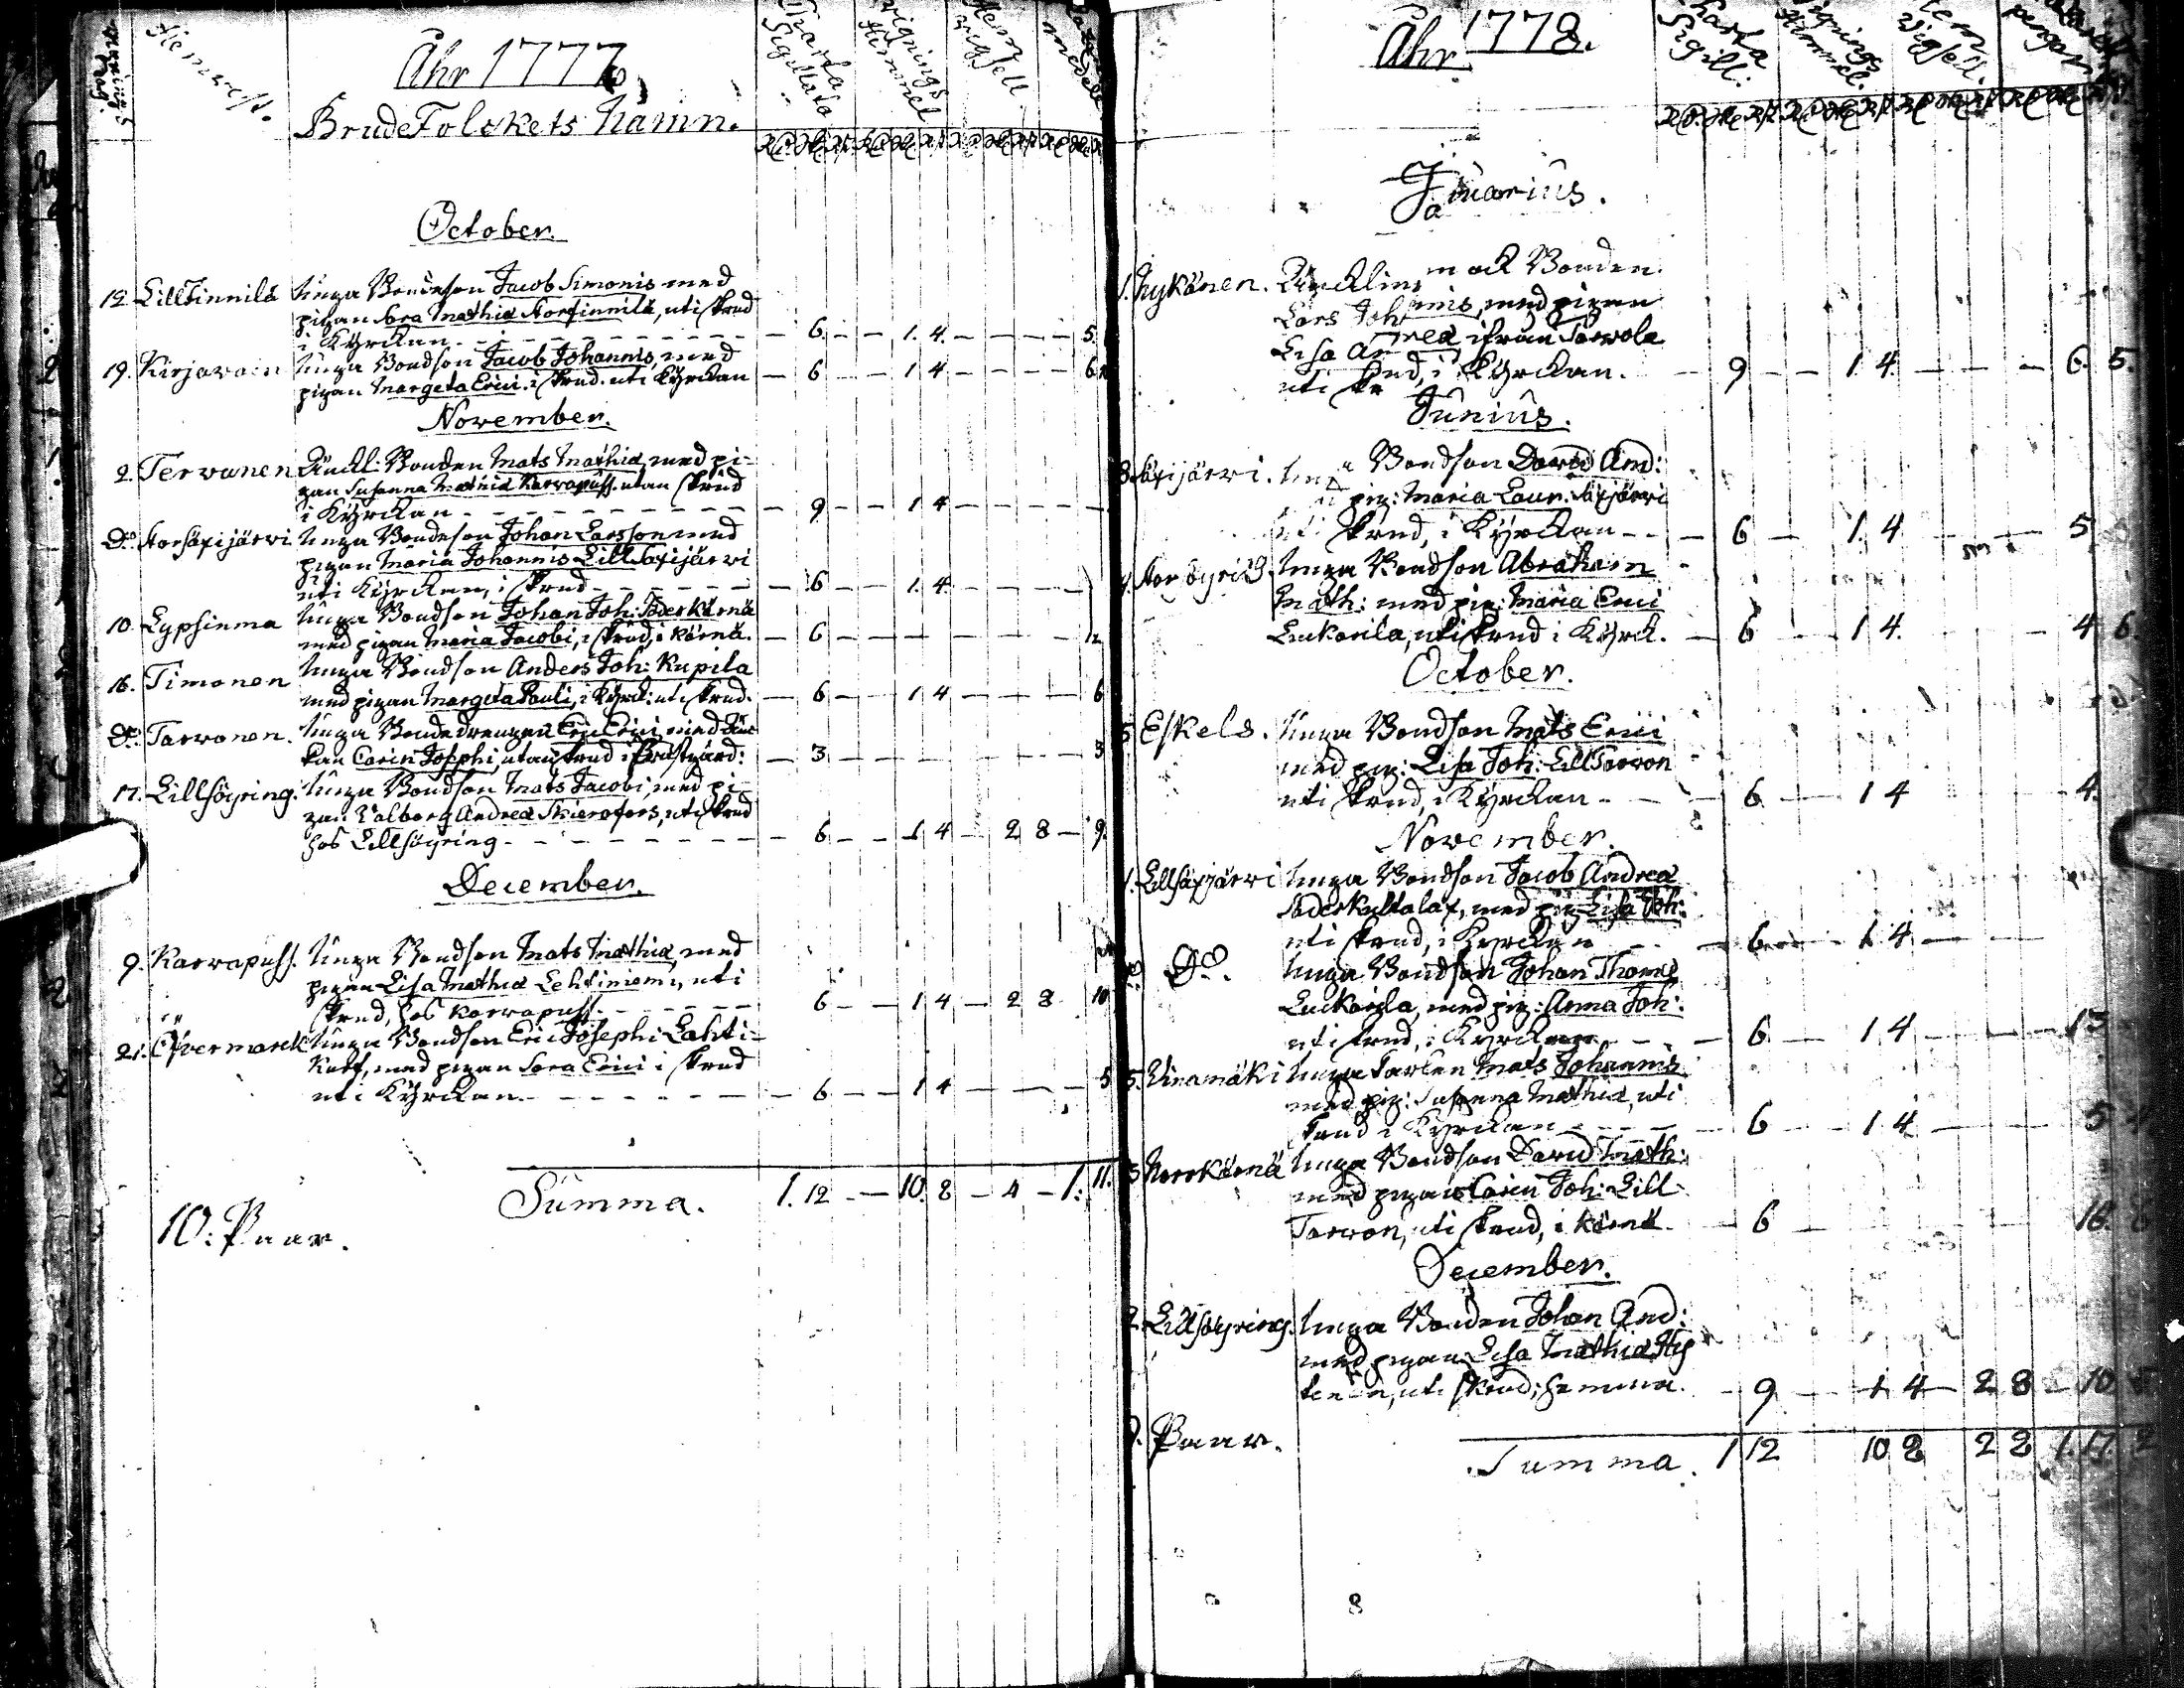 Hemvist.
Åhr 1777.
BrudeFolckets Namn.
October.
12. LillFinnilä Unga Bondeson Jacob Simonis med
pigan Sara Mathiæ Storfinnilä, uti skrud
i Kyrckan - 6 - - 1. 4. - - - - 5.
19. Kirjavain Unga Bondson Jacob Johannis, med
pigan Margeta Erici i skrud uti Kyrckan - 6 - 1 4 - - - - 6
November.
2. Tervanen Änckl: Bonden Mats Mathiæ, med pi-
gan Susanna Mathiæ Karvapuss. utan skrud
i Kyrckan - 9 - - 1 4 - - - -
Do. Storsäxijärvi Unga Bondeson Johan Larsson med
pigan Maria Johannis LillSäxijärvi
uti Kyrckan, i skrud - 6 - - 1. 4. - - - -
10. Lypsinma Unga Bondson Johan Joh: Söderkärnä
med pigan Maria Jacobi, i skrud, i Kärnä. - 6 - - - - - - 12
16. Timonen Unga Bondson Anders Joh: Kupila
med pigan Margeta Pauli, i Kyrck: uti skrud. - 6 - - 1 4 - - - 6
Do. Tarvonen. Unga Bondedrengen Eric Erici med Änc
kan Carin Josephi, utan skrud i Prästgård: - 3 - - - - - - 3
17. Lillsöyring. Unga Bondson Mats Jacobi, med pi-
gan Walborg Andreæ Skierofors, uti skrud
hos Lillsöyring - 6 - - 1 4 - 2 8 - 9.
December.
9. Karvapuss. Unga Bondson Mats Mathiæ, med
pigan Lisa Mathiæ Lehtiniemi, uti
skrud, hos Karvapuss - 6 - - 1 4 - 2 8 10
21. Öfvermarck Unga Bondson Eric Josephi Lahti-
Kurf, med pigan Sara Erici i skrud
uti Kyrckan. - 6 - - 1 4 - - - 5
Summa. 1. 12 - - 10. 8 - 4 - 1: 11.
10: Paar.
Åhr 1778.
Karta
Sigill:
Januarius.
Nykänen. Äncklin mack Bonden
Lars Johannis, med pigan
Lisa Andreæ ifrån Sarvola
uti skrud, i Kyrckan. - 9 - - 1. 4. - - - 6. 5.
Junius.
Säxijärvi. Unga Bondson David And:
pig: Maria Laur. Säxjärvi
uti skrud, i Kyrckan - - - 6 - 1. 4 5
Storsöyring Unga Bondson Abraham
Math: med pig: Maria Erici
Luckarila, uti skrud i Kyrck. - 6 - 1 4. - 4 6.
October.
Eskels. Unga Bondson Mats Erici
med pig: Lisa Joh: LillTarvon
uti skrud, i Kyrckan - - - 6 - 1 4 - 4.
November.
Lillsäxjärvi Unga Bondson Jacob Andreæ
Söderkultalax, med pig: Lisa Joh:
uti skrud, i Kyrckan - - 6 - - 1 4 - -
Do. Unga Bondson Johan Thomæ
Luckarila, med pig: Anna Joh:
uti skrud, i Kyrckan - 6 - 1 4 - - 13
Vinamäki Unga Karlen Mats Johannis
med pig: Susanna Mathiæ, uti
skrud i Kyrckan - - - 6 - - 1 4 - 5
Norrkärnä Unga Bondson David Math:
med pigan Carin Joh: Lill-
Tarvon, uti skrud, i Kärnä - 6 - 16.
December.
Lillsöyring. Unga Bonden Johan And:
med pigan Lisa Mathiæ
uti skrud; hemma. - 9 - 1 4 - 2 8 - 10
9. Paar.
Summa. 1 12 10 8 2 8 1. 17.
8